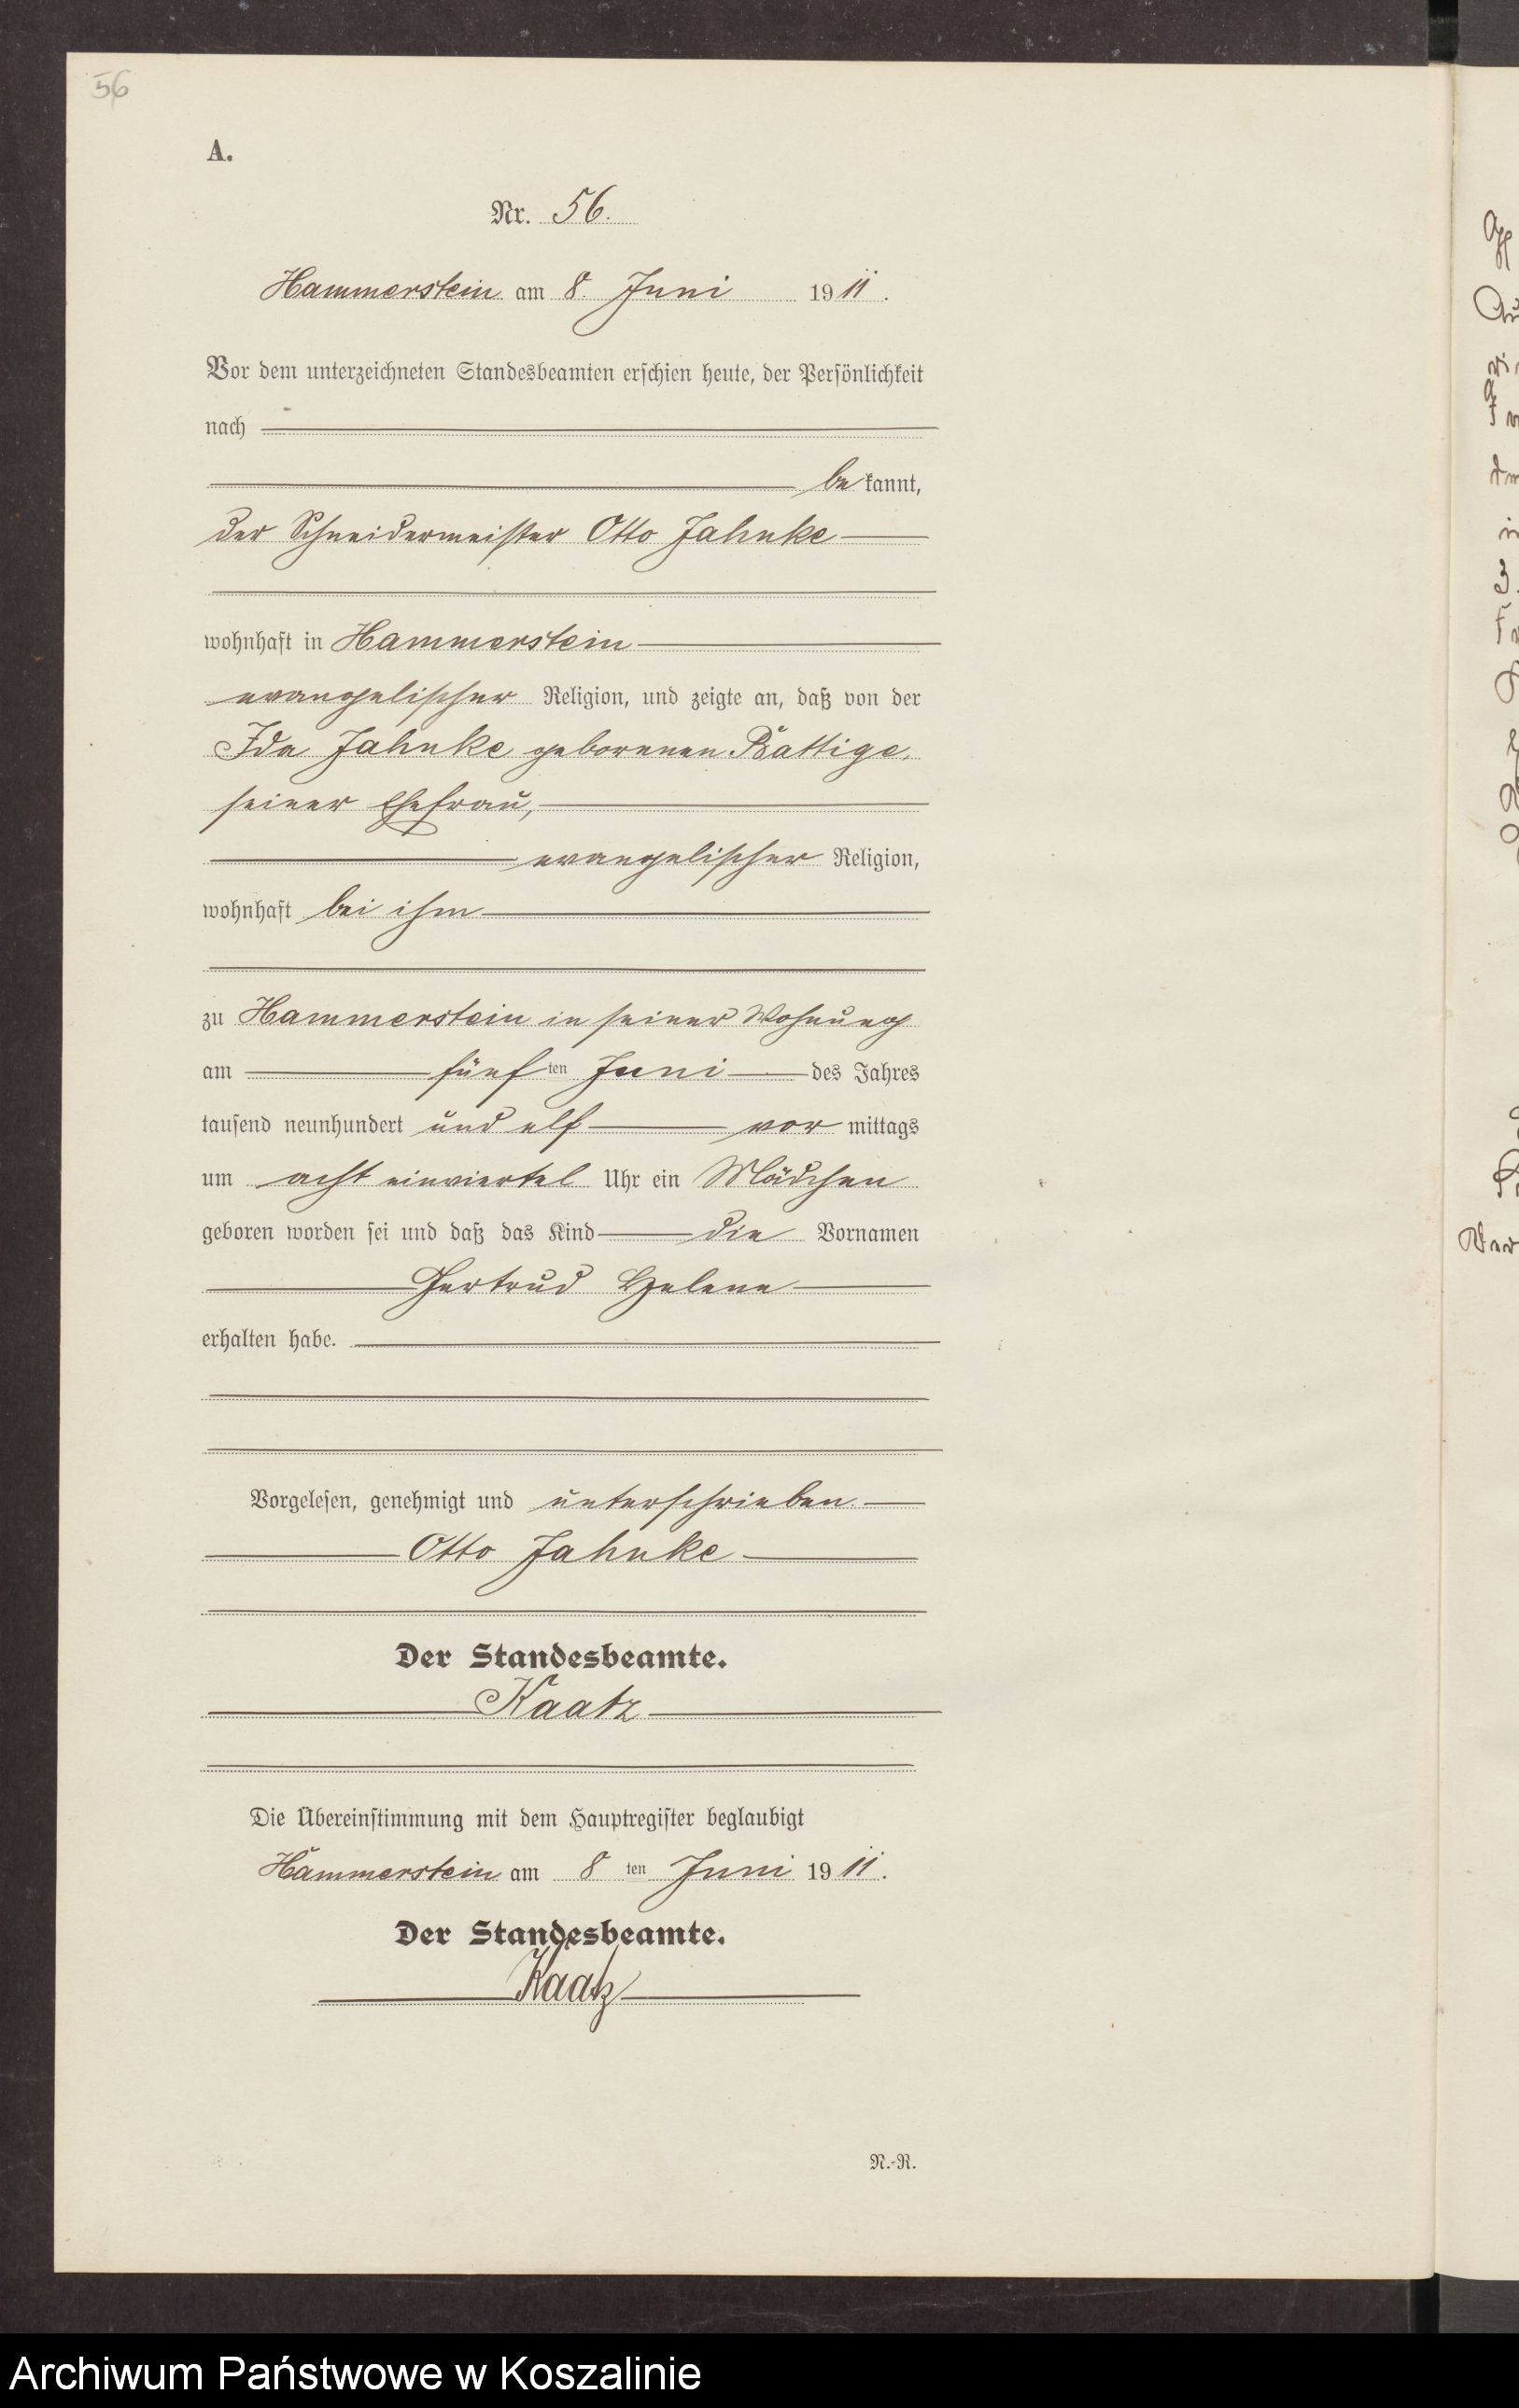 56
A.
Nr. 56.
Hammerstein am 8. Juni 1911.
Vor dem unterzeichneten Standesbeamten erschien heute, der Persönlichkeit
nach
bekannt,
der Schneidermeister Otto Jahnke
wohnhaft in Hammerstein
evangelischer Religion, und zeigte an, daß von der
Ida Jahnke geborenen Rattige,
seiner Ehefrau,
evangelischer Religion,
wohnhaft bei ihm
zu Hammerstein in seiner Wohnung
am fünften Juni des Jahres
tausend neunhundert und elf vormittags
um acht einviertel Uhr ein Mädchen
geboren worden sei und daß das Kind die Vornamen
Gertrud Helene
erhalten habe.
Vorgelesen, genehmigt und unterschrieben
Otto Jahnke
Der Standesbeamte.
Kaatz
Die Übereinstimmung mit dem Hauptregister beglaubigt
Hammerstein am 8ten Juni 1911.
Der Standesbeamte.
Kaatz
N.-R.
Archiwum Państwowe w Koszalinie